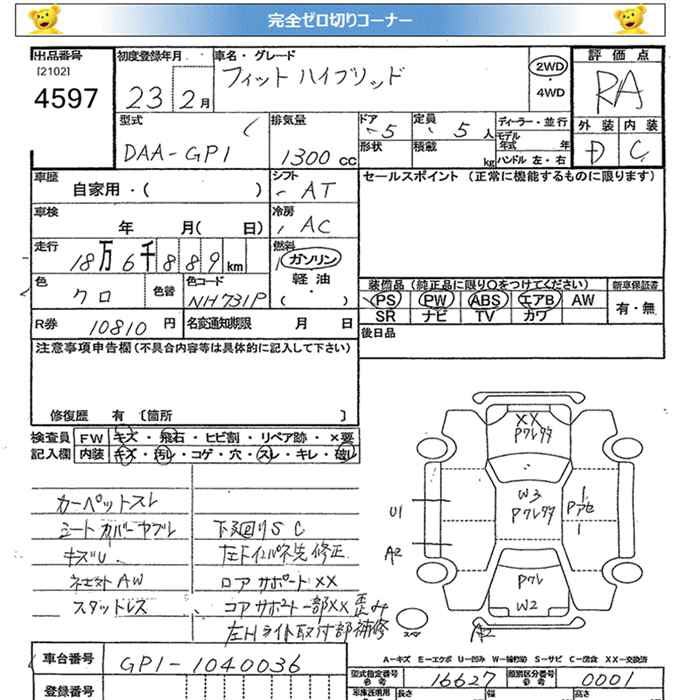 完全ゼロ切りコーナー
出品番号 初度登録年月 車名・グレード 評価点
[2102] フィット ハイブリッド 2WD ・ 4WD RA
4597 23 2月 外装 内装
型式 排気量 ドア 定員 ディーラー・並行 D C
DAA-GP1 1300cc 5 5人 モデル年式 年
形状 積載 kg ハンドル 左・右
車歴 自家用・( ) シフト AT セールスポイント(正常に機能するものに限ります)
車検 年 月( 日) 冷房 AC
走行 18万6千889km 燃料 ガソリン 軽油・( )
色 クロ 色替 色コード NH731P
装備品(純正品に限り○をつけてください) 新車保証書
PS PW ABS エアB AW 有・無
SR ナビ TV カワ
R券 10810円 名変通知期限 月 日 後日品
注意事項申告欄(不具合内容等は具体的に記入して下さい)
修復歴 有 〔箇所 〕
検査員 FW キズ・飛石・ヒビ割・リペア跡・×要
記入欄 内装 キズ・汚レ・コゲ・穴・スレ・キレ・破レ
カーペットスレ
シートカバーヤブレ
キズU
ネセストAW
スタッドレス
下廻りSC
左Fインパネ先修正
ロアサポートXX
コアサポート一部XX歪み
左Hライト取付部補修
XX
Pクレタタ
W3
Pクレタタ
Pアセ
U1
A2
Pクレ
W2
スペア
A2
A-キズ E-エクボ U-凹み W-補修跡 S-サビ C-腐食 XX-交換済
車台番号 GP1-1040036
型式指定番号 参考 16627 類別区分番号 参考 0001
登録番号 車検証明用 参考 長さ 幅 高さ